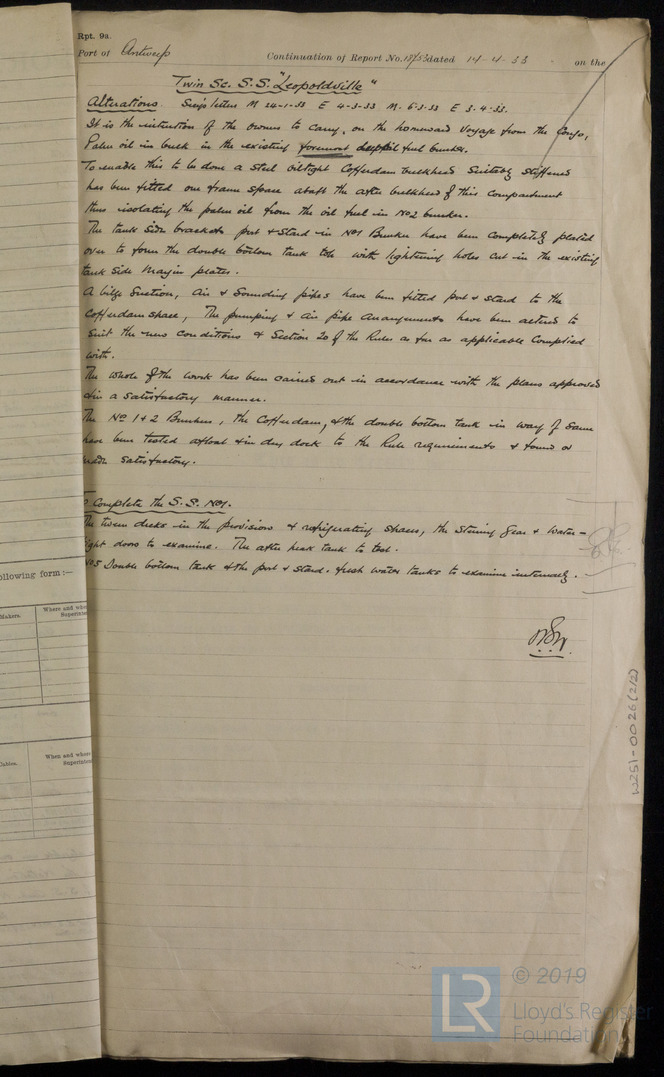 Rpt. 9a.
Port of Antwerp Continuation of Report No. dated 19-4-33 on the
Twin Sc. S.S. "Leopoldville"
Alterations. letters M 24-1-33 E 4-3-33 M. 6-3-33 E 3-4-33.
It is the intention of the owners to carry, on the homeward voyage from the Congo,
Palm oil in bulk in the existing foremost deep oil fuel bunker.
To enable this to be done a steel oiltight Cofferdam bulkhead suitably stiffened
has been fitted one frame space abaft the after bulkhead of this compartment
thus isolating the palm oil from the oil fuel in No2 bunker.
The tank side brackets port & Starbd in No1 Bunker have been completely plated
over to form the double bottom tank top with lightening holes cut in the existing
tank side margin plates.
A bilge suction, air & sounding pipes have been fitted port & starbd to the
Cofferdam space, The pumping & air pipe arrangements have been altered to
suit the new conditions & Section 20 of the Rules as far as applicable complied
with.
The whole of the work has been carried out in accordance with the plans approved
& in a satisfactory manner.
The No 1 & 2 Bunkers, the Cofferdam, & the double bottom tank in way of same
have been tested afloat & in dry dock to the Rule requirements & found or
made satisfactory.
To Complete the S.S. No1.
The tween decks in the provision & refrigerating spaces, the steering gear & water-
tight doors to examine. The after peak tank to test.
No5 Double bottom tank & the port & starbd. fresh water tanks to examine internally.
W251-0026 (2/2)
ollowing form :—
Makers.
Where and whe
Superinte
Cables.
When and wher
Superinten
LR
© 2019
Lloyd's Register
Foundation